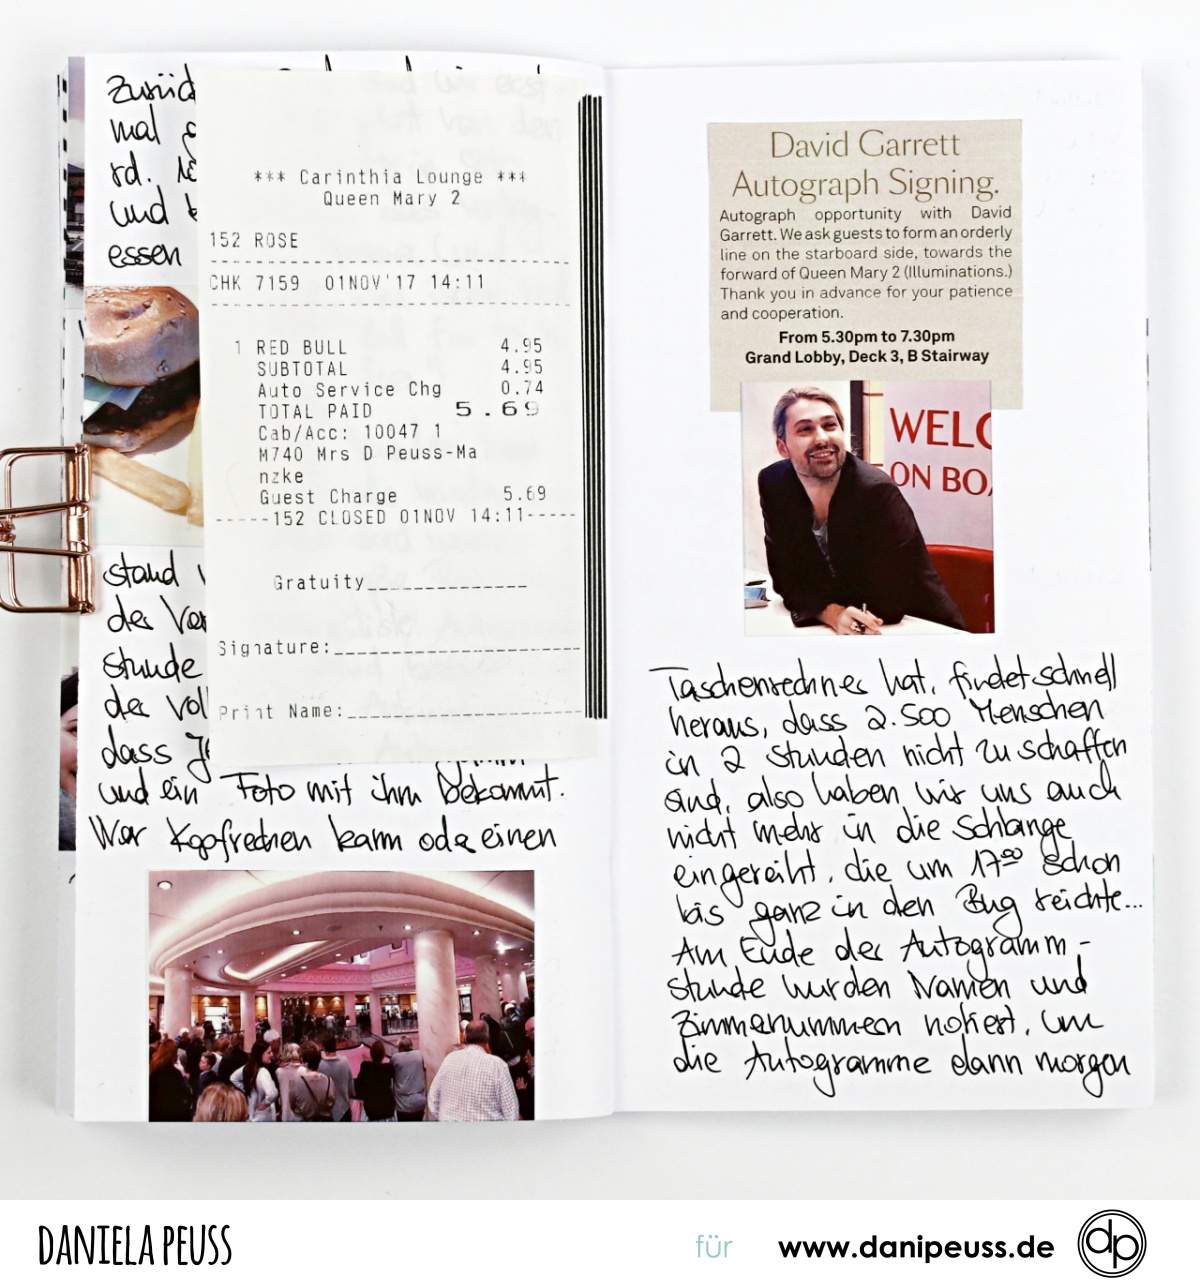 Zurück
mal
rd.
und
essen
*** Carinthia Lounge ***
Queen Mary 2
152 ROSE
CHK 7159 01NOV'17 14:11
1 RED BULL 4.95
SUBTOTAL 4.95
Auto Service Chg 0.74
TOTAL PAID 5.69
Cab/Acc: 10047 1
M740 Mrs D Peuss-Ma
nzke
Guest Charge 5.69
-----152 CLOSED 01NOV 14:11-----
Gratuity
Signature:
Print Name:
stand
der
Stunde
der
dass
und ein Foto mit ihm bekommt.
Wer Kopfrechnen kann oder einen
David Garrett
Autograph Signing.
Autograph opportunity with David
Garrett. We ask guests to form an orderly
line on the starboard side, towards the
forward of Queen Mary 2 (Illuminations.)
Thank you in advance for your patience
and cooperation.
From 5.30pm to 7.30pm
Grand Lobby, Deck 3, B Stairway
WELC
ON BOA
Taschenrechner hat, findet schnell
heraus, dass 2.500 Menschen
in 2 Stunden nicht zu schaffen
sind, also haben wir uns auch
nicht mehr in die Schlange
eingereiht, die um 17⁰⁰ schon
bis ganz in den Bug reichte...
Am Ende der Autogramm-
stunde wurden Namen und
Zimmernummern notiert, um
die Autogramme dann morgen
DANIELA PEUSS
für www.danipeuss.de dp